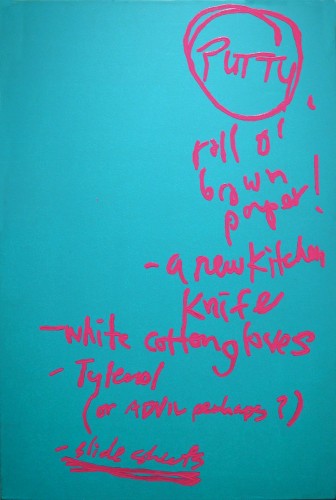 PUTTY
roll o'
brown
paper!
- a new kitchen
knife
- white cotton gloves
- Tylenol
(or ADVIL perhaps?)
- slide sheets